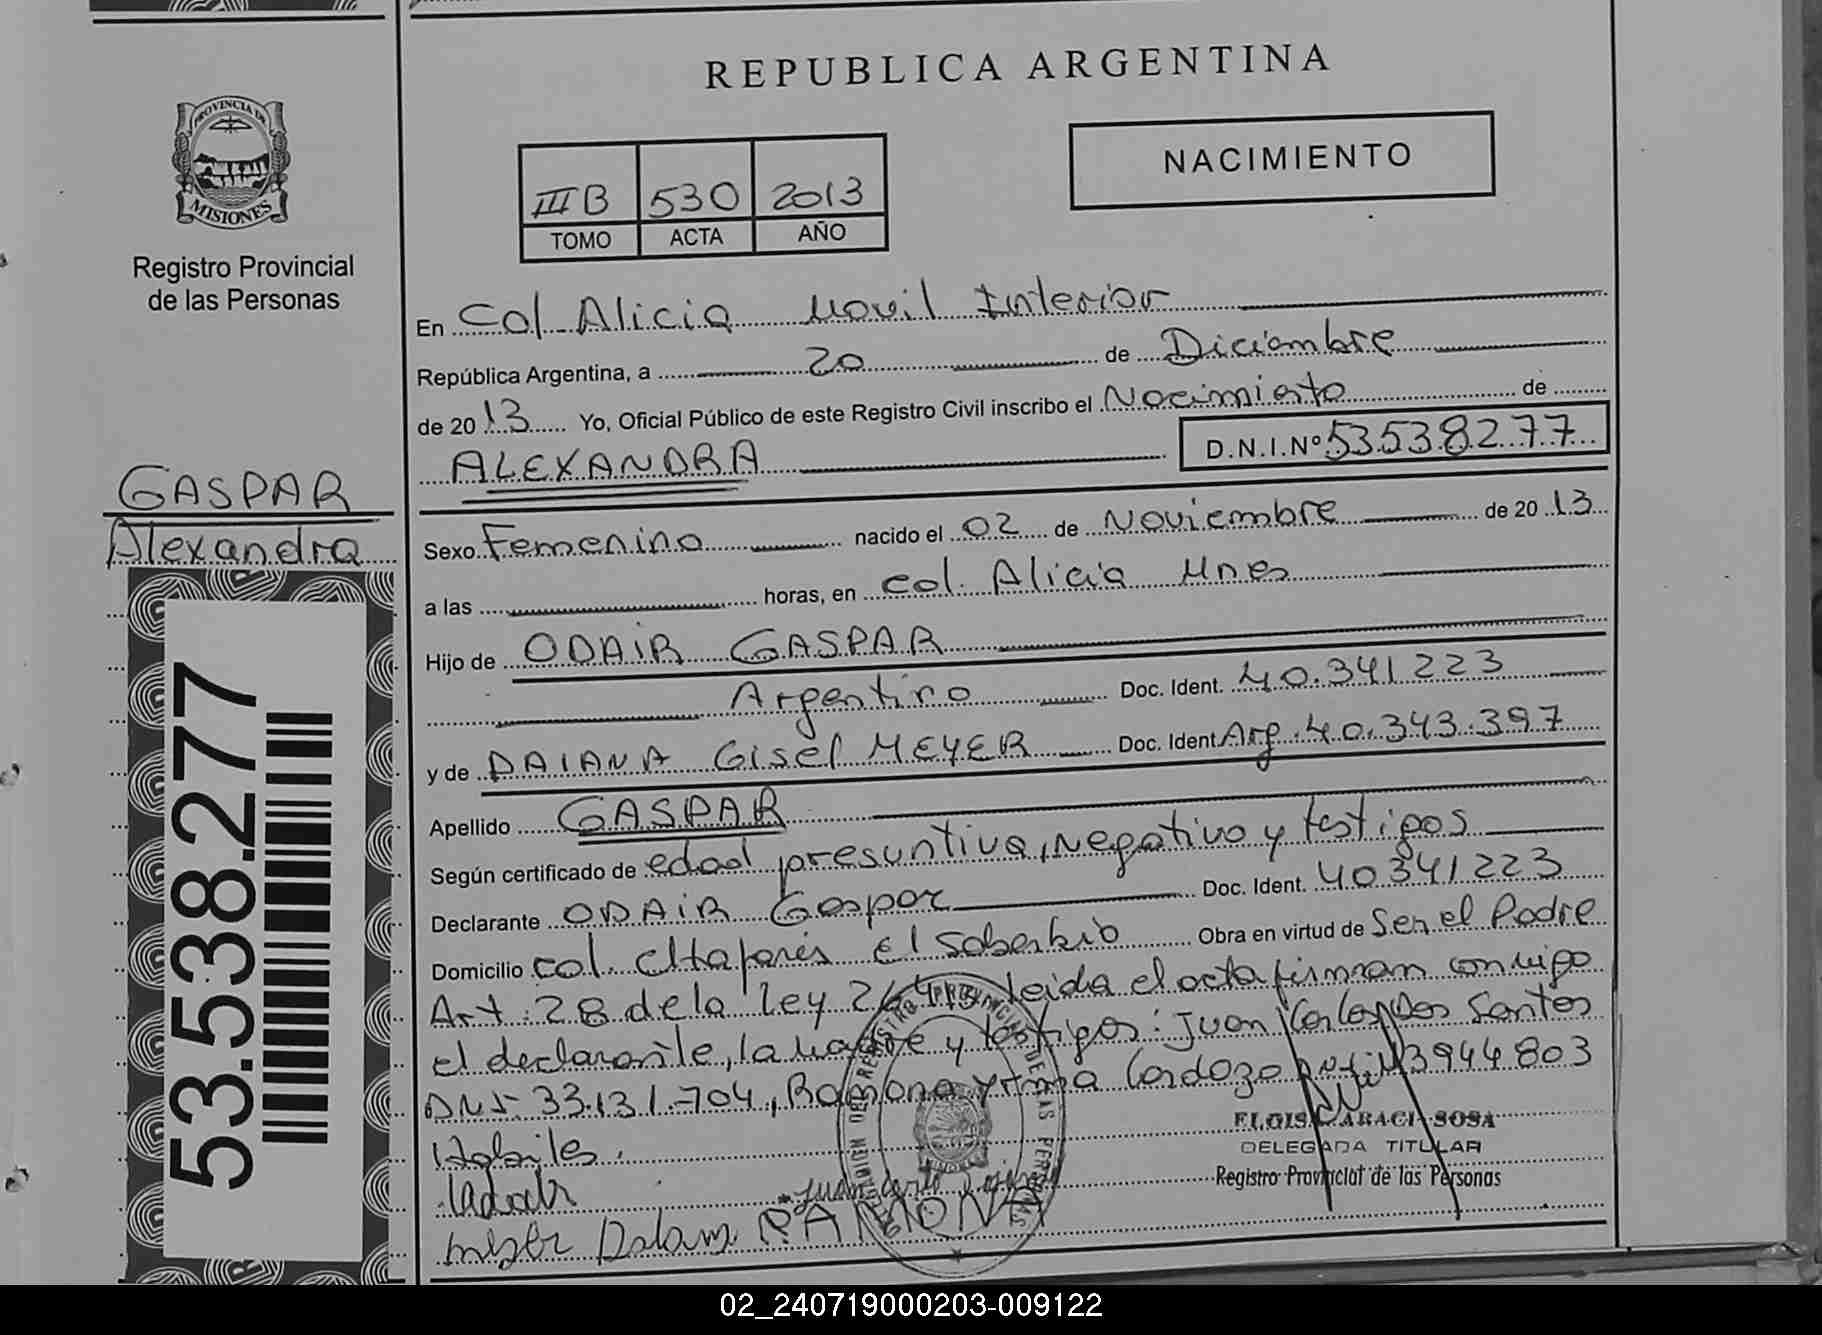 REPUBLICA ARGENTINA
PROVINCIA DE
MISIONES
Registro Provincial
de las Personas
NACIMIENTO
III B 530 2013
TOMO ACTA AÑO
En Col Alicia Movil Interior
República Argentina, a 20 de Diciembre
de 2013 Yo, Oficial Público de este Registro Civil inscribo el Nacimiento de
ALEXANDRA D.N.I.Nº 53538277
GASPAR
Alexandra
53.538.277
Sexo Femenino nacido el 02 de Noviembre de 2013
a las horas, en col. Alicia Mnes
Hijo de ODAIR GASPAR
Argentino Doc. Ident. 40.341223
y de DAIANA Gisel MEYER Doc. Ident Arg. 40.343.397
Apellido GASPAR
Según certificado de edad presuntiva, Negativo y testigos
Declarante ODAIR Gaspar Doc. Ident. 40341223
Domicilio col. El Soberbio Obra en virtud de Ser el Padre
Art. 28 de la ley leida el acta firman conmigo
el declarante, la madre y testigos: Juan Carlos Dos Santos
DNI 33.131.704, Ramona Cardozo 3944803
Habiles.
Juan Carlo
RAMONA
ELOISA ARACI SOSA
DELEGADA TITULAR
Registro Provincial de las Personas
02_240719000203-009122